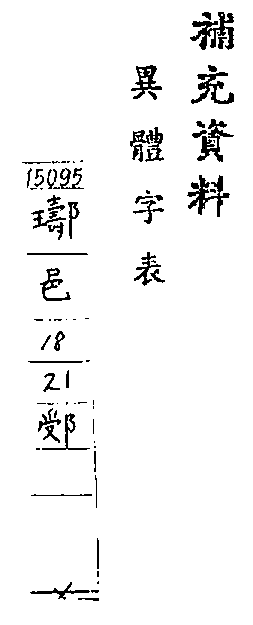 補充資料
異體字表
15095
邑
18
21